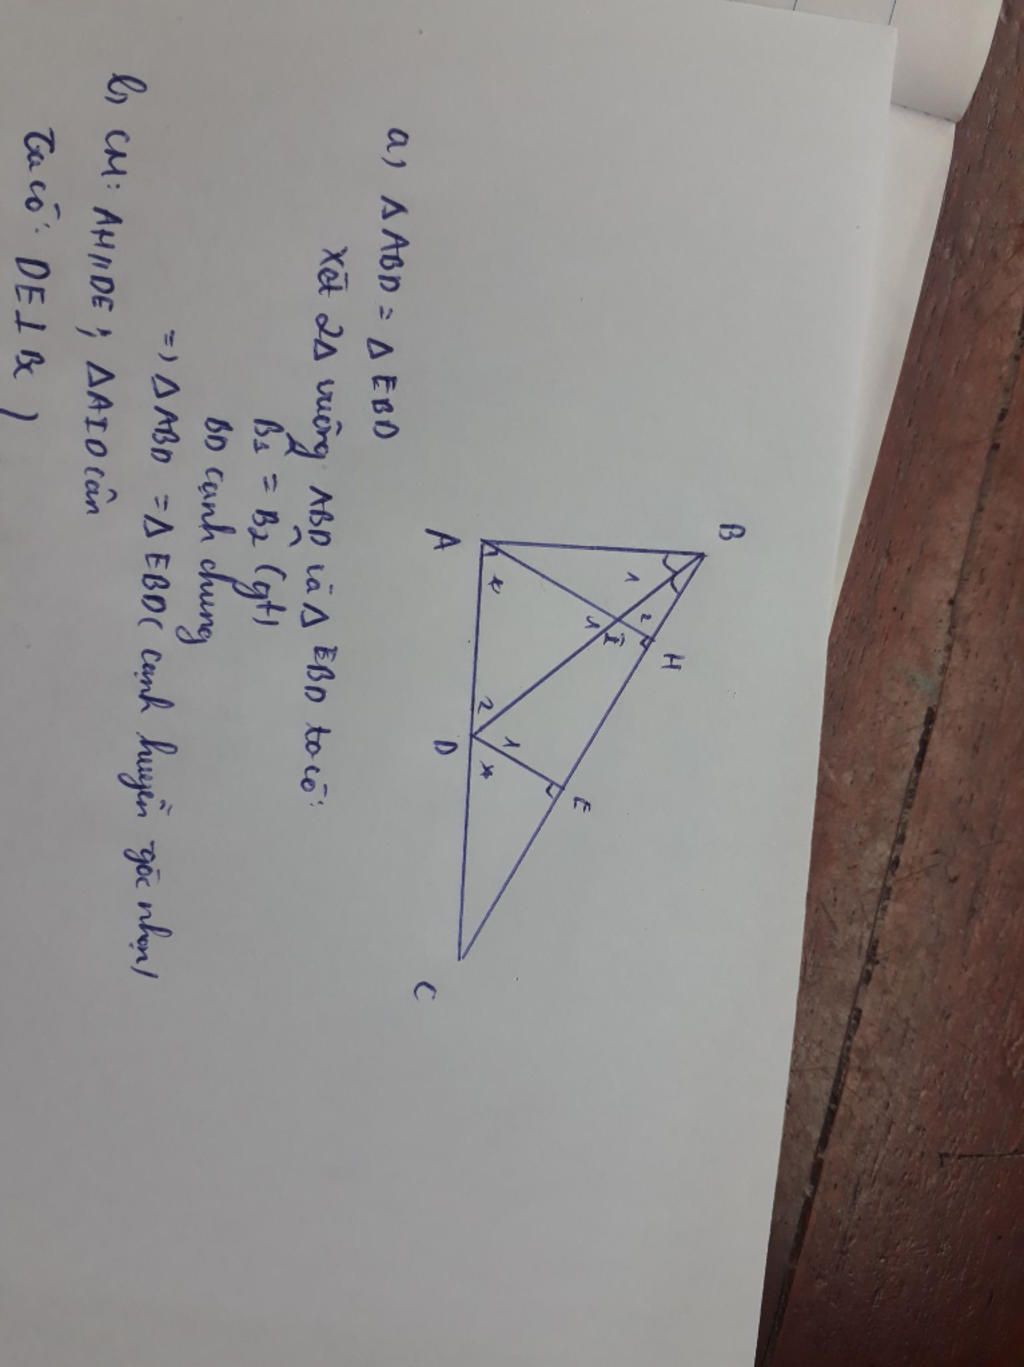 B
H
1
2
I
1
E
A
x
2
1
x
D
C
a, Δ ABD = Δ EBD
Xét 2Δ vuông ABD và Δ EBD ta có:
B̂1 = B̂2 (gt)
BD cạnh chung
=> Δ ABD = Δ EBD ( cạnh huyền góc nhọn)
b, CM: AH//DE; ΔAID cân
Ta có: DE⊥Bx )